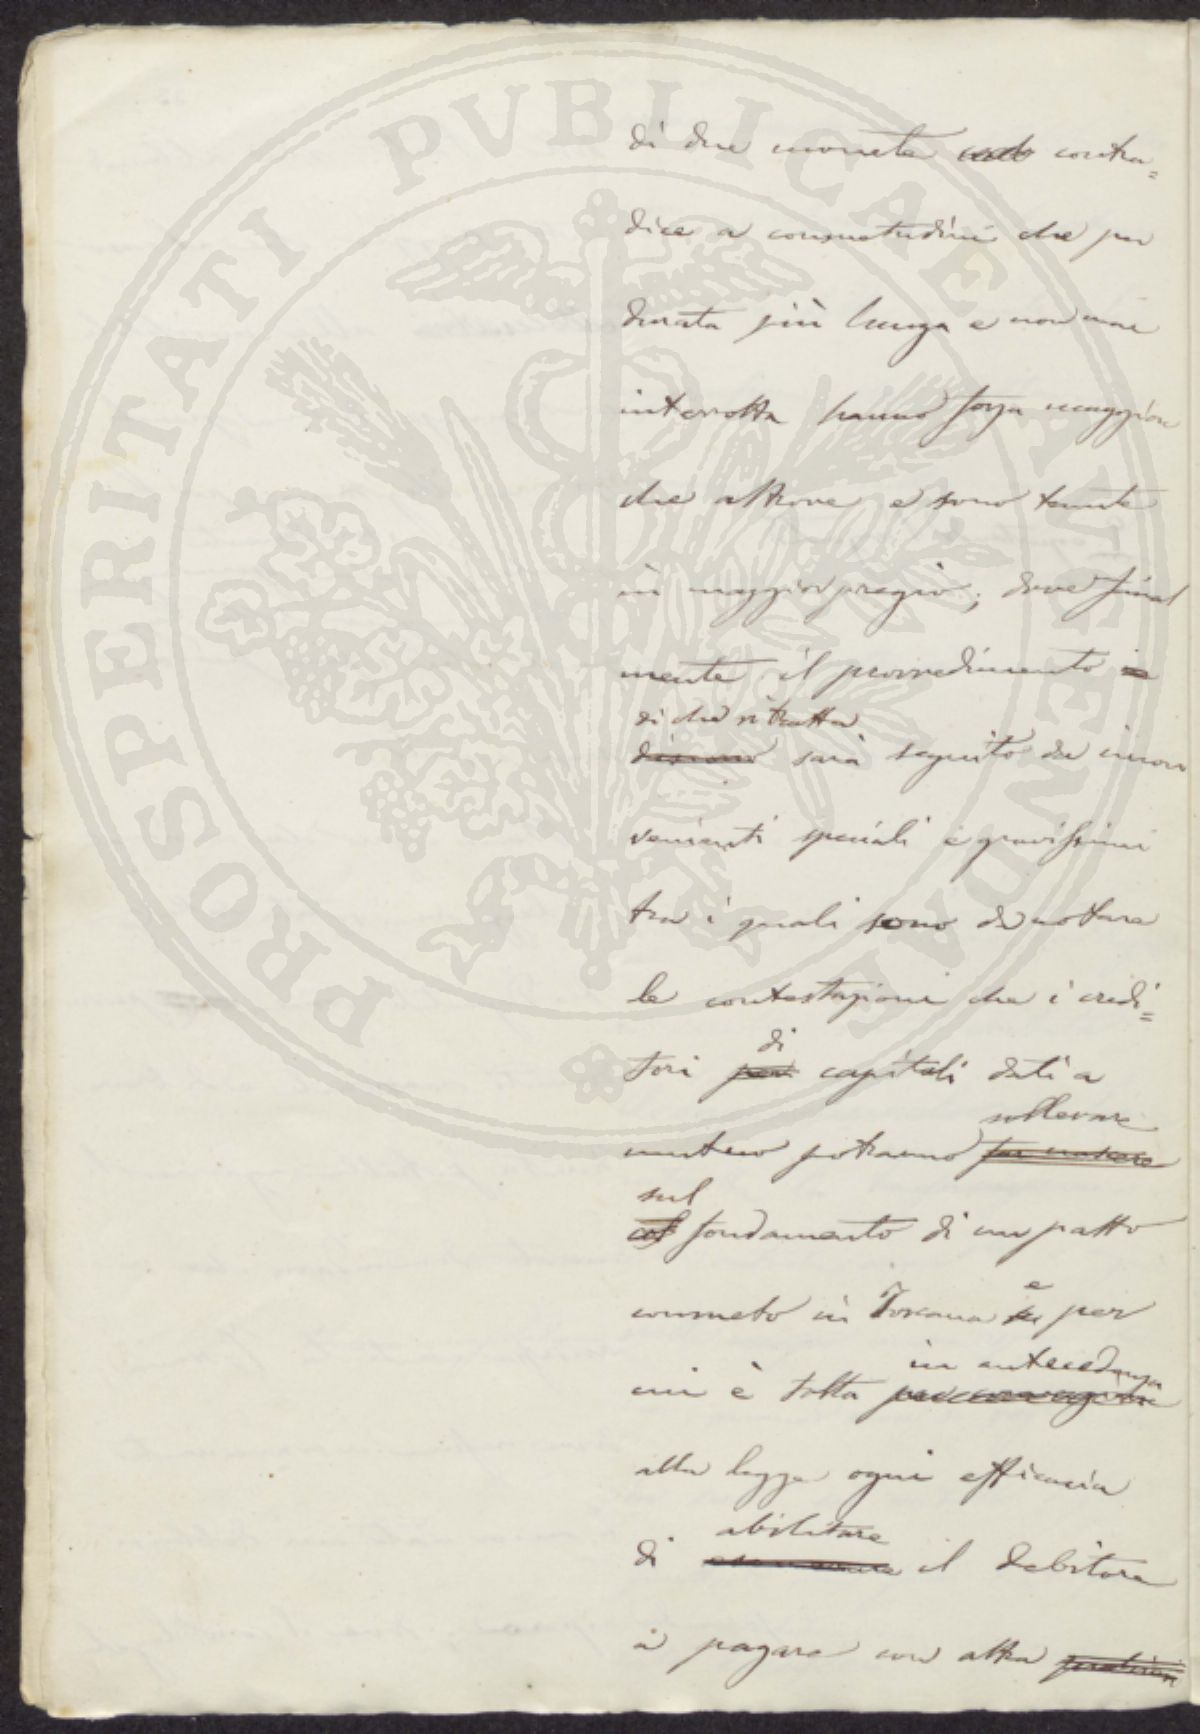 PROSPERITATI PVBLICAE AVGENDAE
di due monete contra=
dice a consuetudini che per
durata più lunga e non mai
interrotta hanno forza maggiore
che altrove e sono tenute
in maggior pregio; dove final
mente il provvedimento in
di che si tratta
sarà seguito da incon
venienti speciali e gravissimi
tra i quali sono da notare
le contestazioni che i credi=
di
tori per capitali dati a
sollevare
mutuo potranno far nascere
sul
col fondamento di un patto
e
consueto in Toscana per
in antecedenza
cui è tolta
alla legge ogni efficacia
abilitare
di il debitore
a pagare con altra